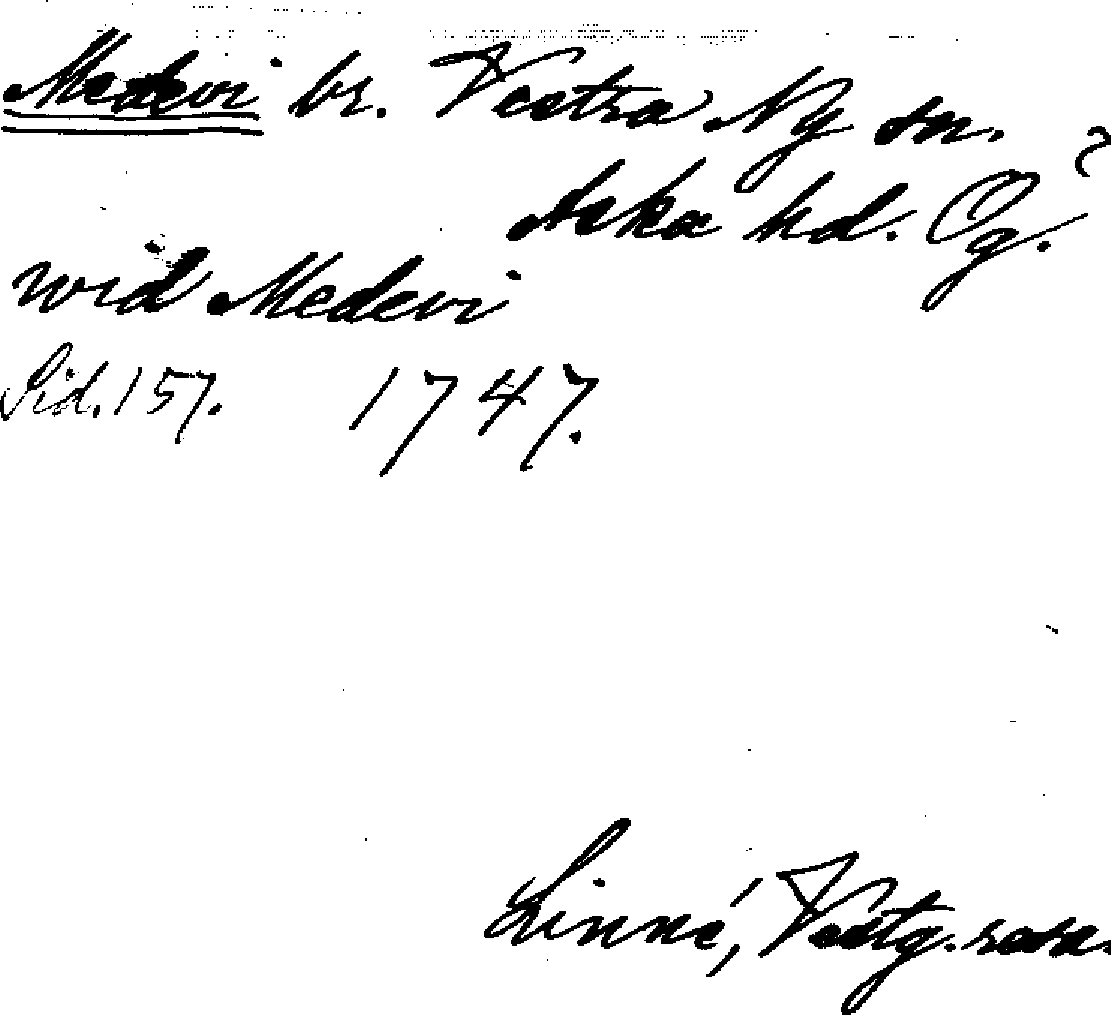 Medevi br. Vestra Ny sn.
Aska hd. Ög.
wid Medevi
Sid. 157. 1747.
Linné, Vestg. resa.